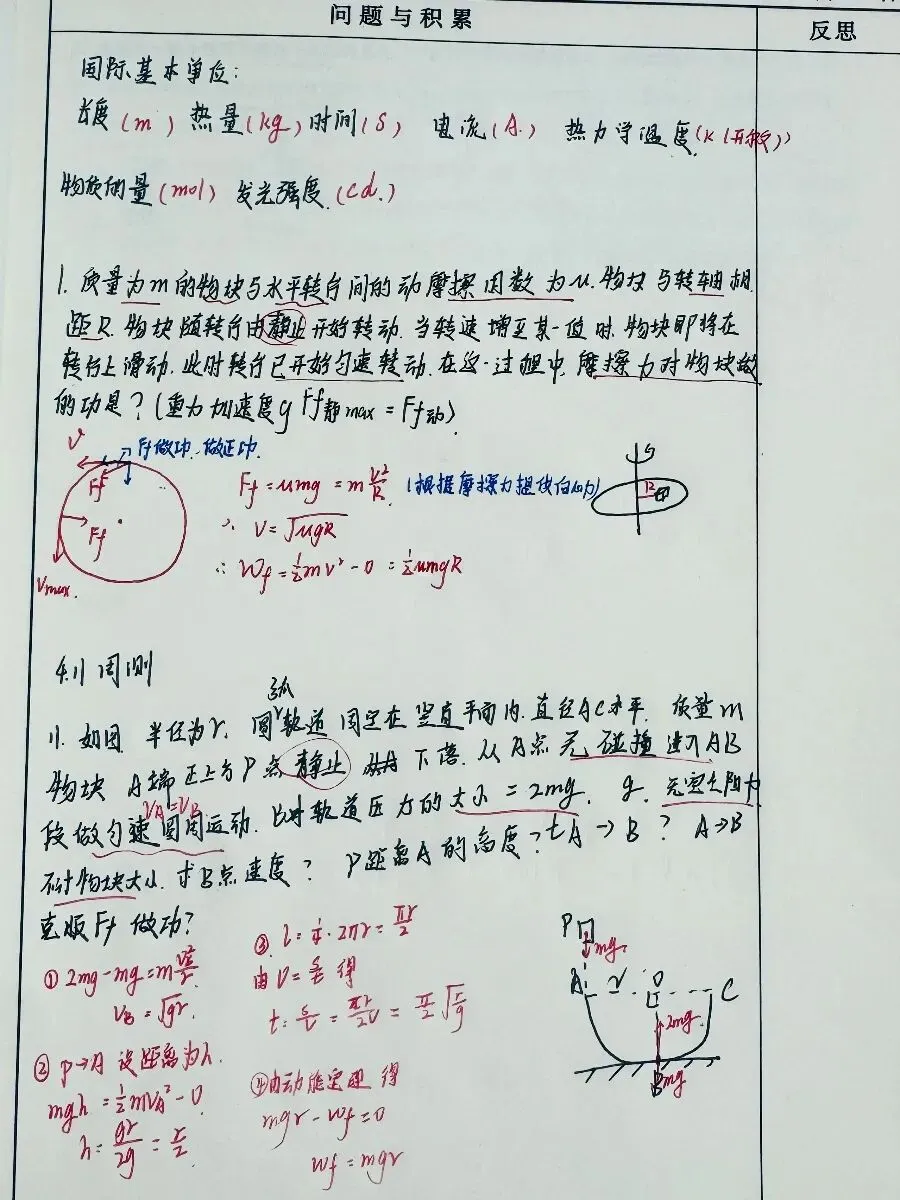 问题与积累
反思
国际基本单位:
长度(m) 热量(kg) 时间(S) 电流(A.) 热力学温度(K(开尔文))
物质的量(mol) 发光强度.(cd.)
1. 质量为m的物块与水平转台间的动摩擦因数为μ.物块与转轴相
距R.物块随转台由静止开始转动.当转速增至某一值时.物块即将在
转台上滑动.此时转台已开始匀速转动.在这一过程中.摩擦力对物块做
的功是?(重力加速度g Ff静max=Ff动)
V
Ff做功.做正功.
Ff
Ff
Vmax.
Ff=μmg=m\frac{V²}{R}. (根据摩擦力提供向心力)
∴ V=√μgR
∴ Wf=½mV²-0=½μmgR
R
周测
弧
11. 如图 半径为r. 圆轨道固定在竖直平面内.直径AC水平. 质量m
物块 A端正上方P点静止 下落.从A点无碰撞进入AB
VA=VB
段做匀速圆周运动. B对轨道压力的大小=2mg. g. 无空气阻力
不计物块大小.求B点速度? P距离A的高度? tA→B? A→B
克服Ff做功?
① 2mg-mg=m\frac{V²}{r}
VB=√gr.
② P→A 设距离为h.
mgh=½mVA²-0
h=\frac{gr}{2g}=\frac{r}{2}
③. l=¼·2πr=\frac{πr}{2}
由V=\frac{s}{t}得
t=\frac{s}{V}=\frac{πr}{2V}=\frac{π}{2}\sqrt{\frac{r}{g}}
④由动能定理得
mgr-Wf=0
Wf=mgr
P
mg.
A
r
O
C
2mg.
B
mg